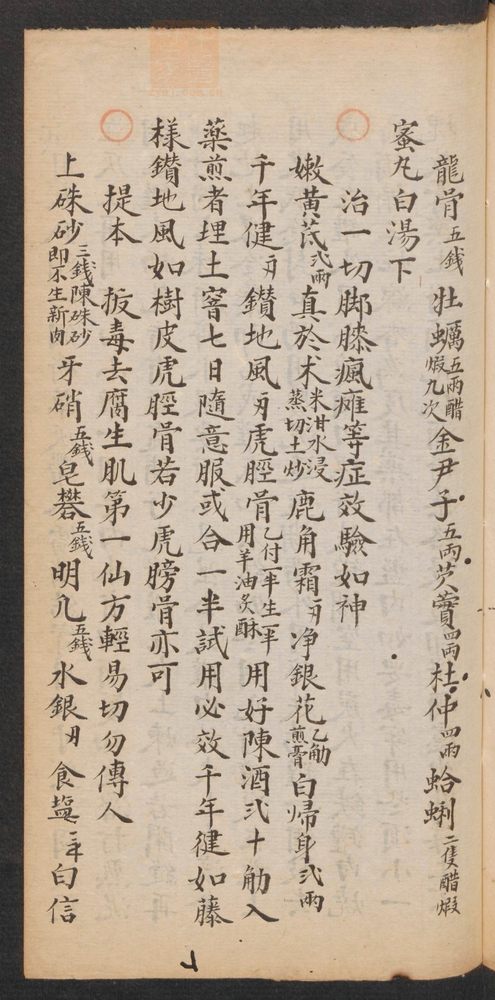 龍骨五錢 牡蠣五兩醋煆九次 金尹子五兩 芡實四兩 杜仲四兩 蛤蜊二隻醋煆
蜜丸白湯下
治一切脚膝瘋瘫等症效驗如神
嫩黃芪弍兩 真於术米泔水浸蒸切土炒 鹿角霜 净銀花乙觔煎膏 白歸身弍兩
千年健 鑽地風 虎脛骨乙付一半生一半用羊油炙酥 用好陳酒弍十觔入
藥煎者埋土窨七日隨意服或合一半試用必效千年健如藤
樣鑚地風如樹皮虎脛骨若少虎膀骨亦可
提本 扳毒去腐生肌第一仙方輕易切勿傳人
上硃砂三錢陳硃砂即不生新肉 牙硝五錢 皂礬五錢 明凢五錢 水銀 食塩 白信